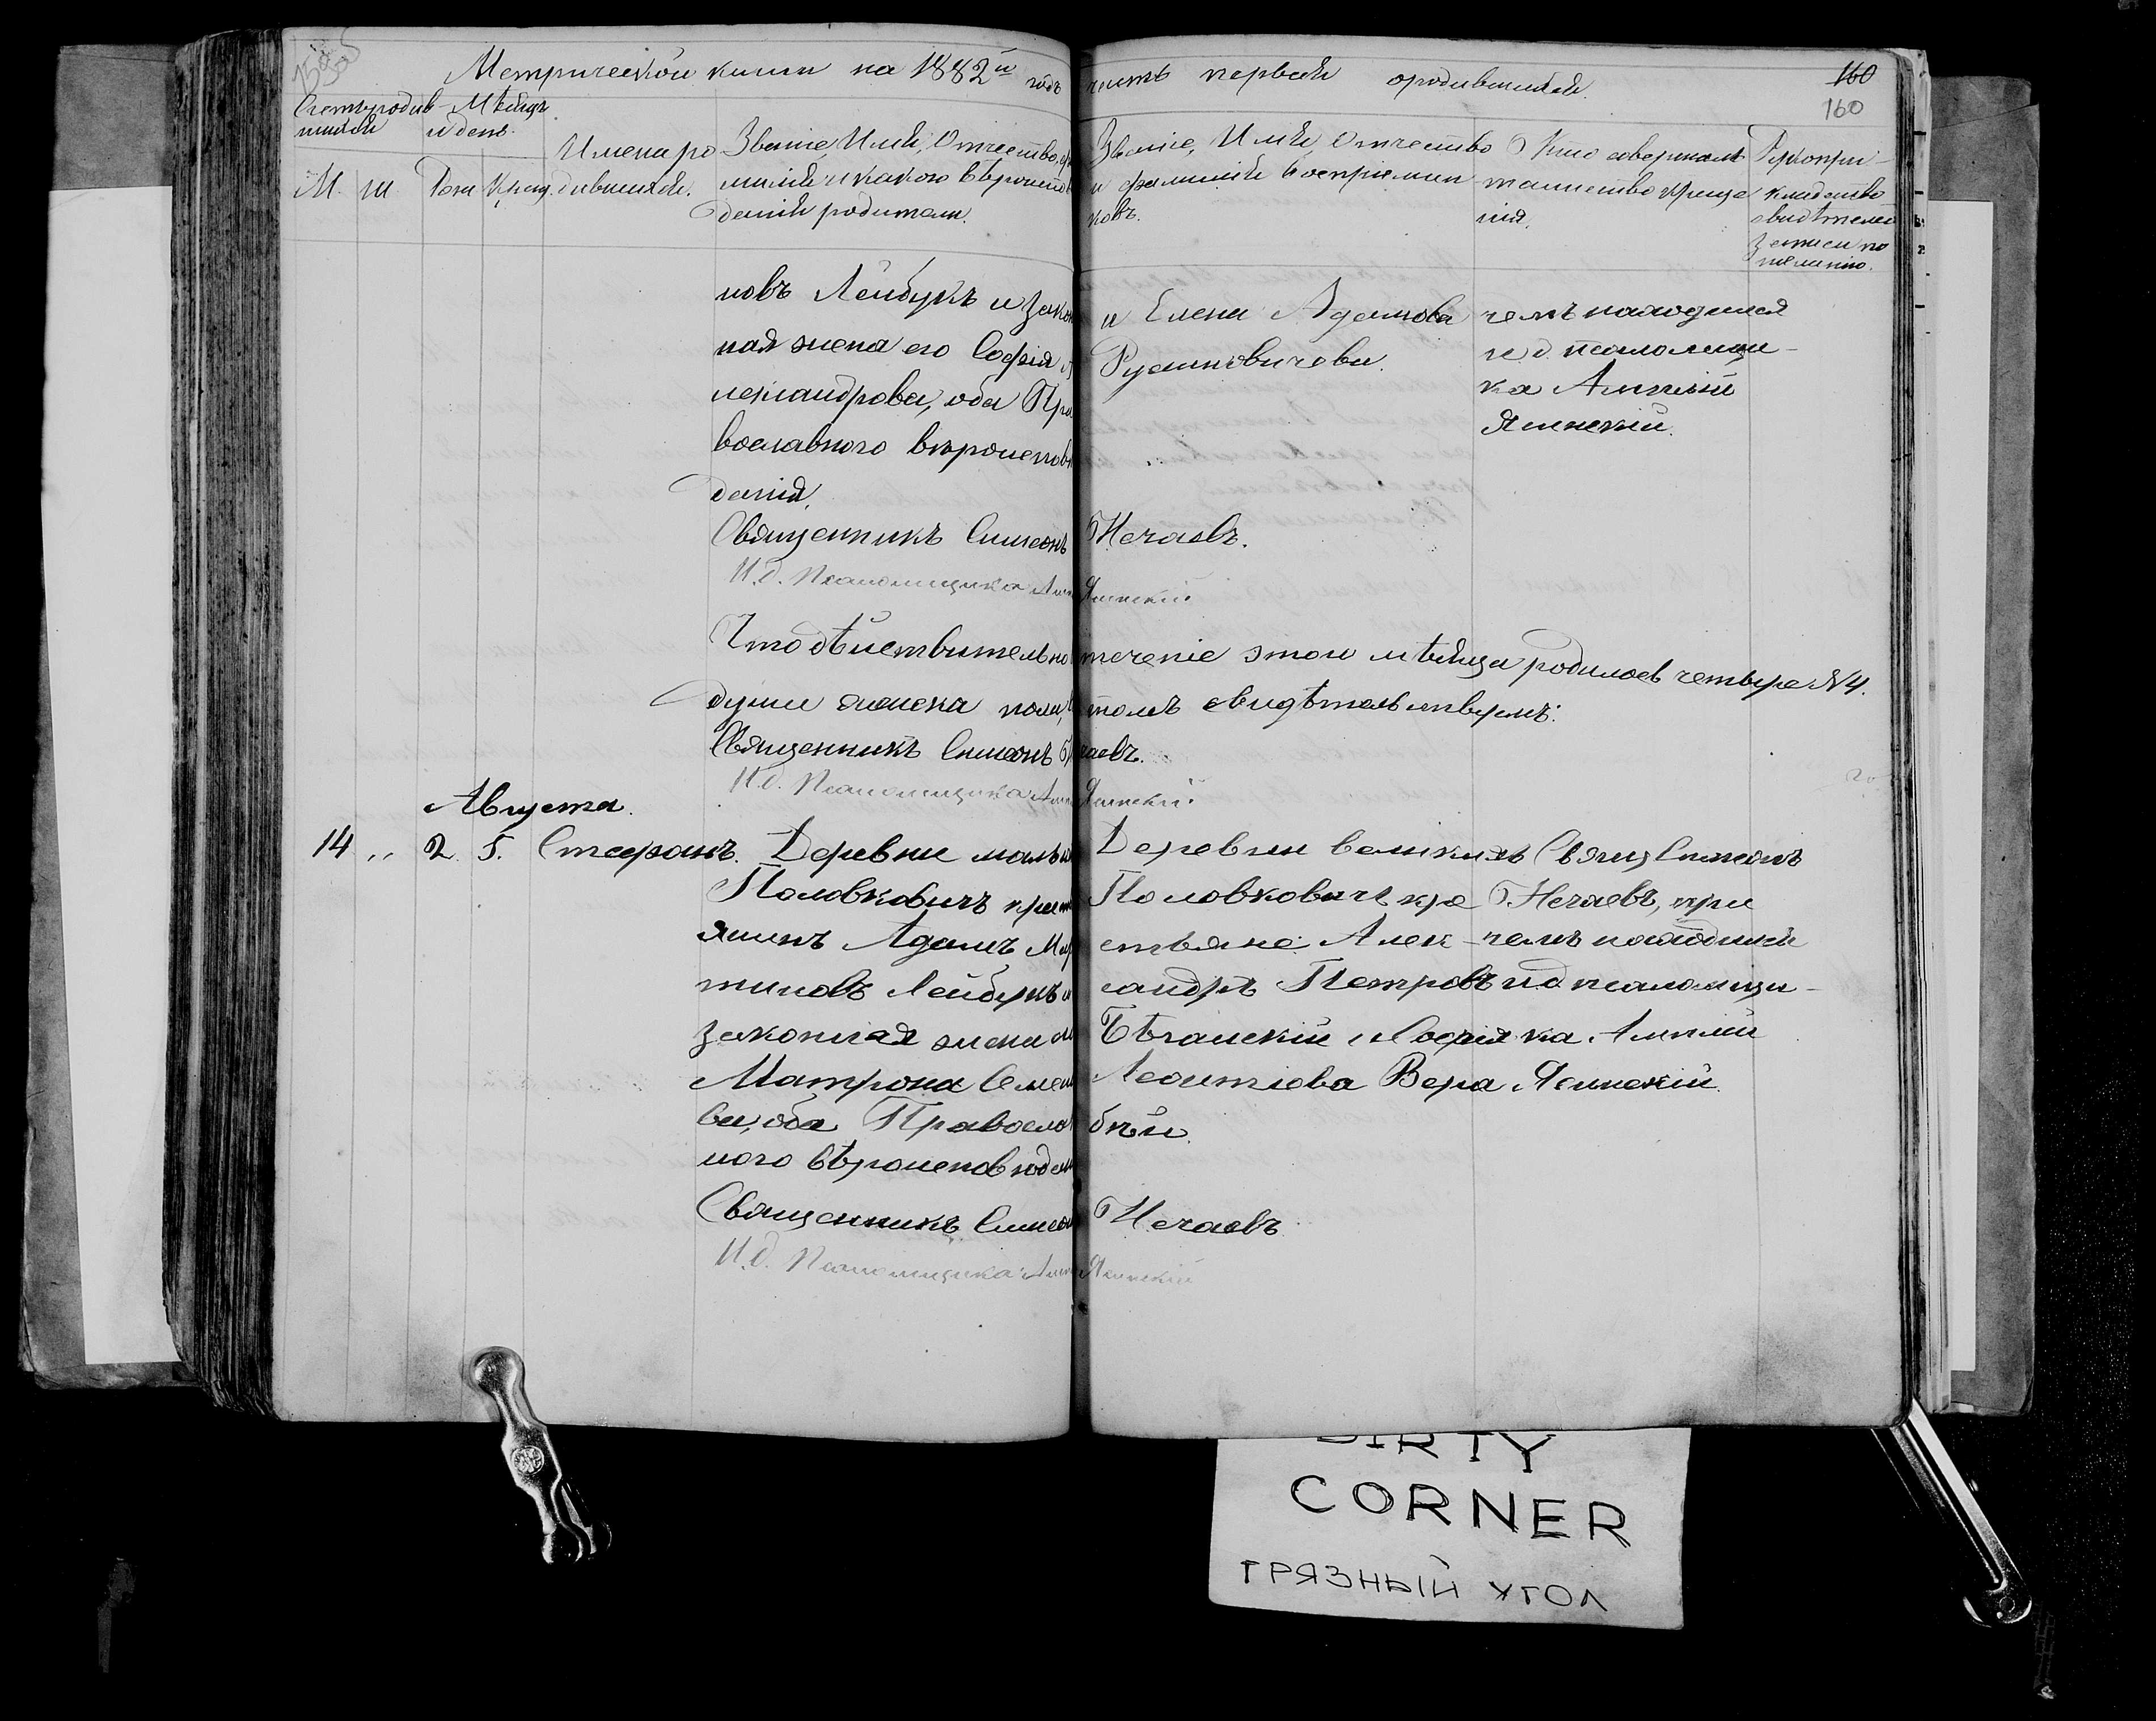 Метрической книги на 1882й годъ часть первая о родившихся.
160
160
Счетъ родив-
шихся
Мѣсяцъ
и день.
М. ж. Рож. Крещ.
Имена ро
дившихся.
Званіе, Имя, Отчество, фа
милія и какого вѣроиспов
данія родители.
Званіе, Имя, Отчество
и фамилія воспріемни
ковъ.
Кто совершалъ
таинство креще
нія.
Рукопри-
кладство
свидѣтелей
записи по
желанію.
новъ Лейбукъ и закон
ная жена его Софія А
лександрова, оба Пра
вославнаго вѣроиспов
данія.
и Елена Адамова
Румановичева.
чемъ находился
и д псаломщи-
ка
Ясинскій.
Священникъ Симеонъ Нечаевъ.
И.д. Псаломщика Ясинскій
Что дѣйствительно теченіе этого мѣсяца родилось четыре №4.
души женска пола, томъ свидѣтельствуемъ:
Священникъ Симеонъ чаевъ.
И.д. Псаломщика Ясинскій
Августа.
14 " 2. 5. Стефанъ.
Деревни малы
Половковичъ крест
янинъ Адамъ Мар
тиновъ Лейбукъ и
законная жена е
Матрона Семен
ва, оба Правосла
ного вѣроисповѣдан
Деревни великихъ
Половковичъ кре
стьяне: Алек
сандръ Петровъ
Бѣганскій и Софія
Леонтіева Вера
бѣй.
Свящ Симеонъ
Нечаевъ, при
чемъ находился
и д псаломщи-
ка
Ясинскій.
Священникъ Симеон Нечаевъ
И.д. Псаломщика Ясинскій
DIRTY
CORNER
ГРЯЗНЫЙ УГОЛ